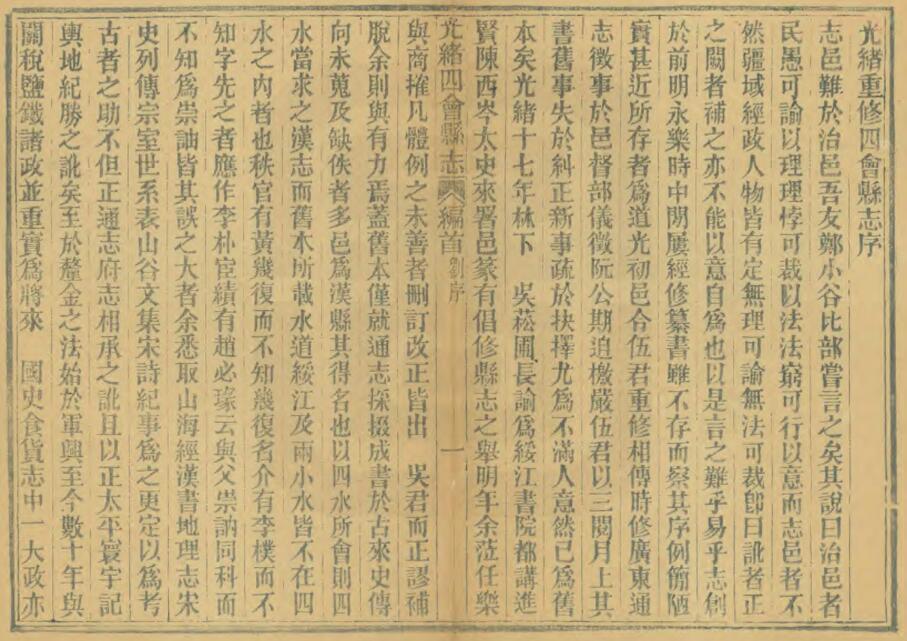 光緒重修四會縣志序
志邑難於治邑吾友鄭小谷比部嘗言之矣其說曰治邑者
民愚可諭以理理悖可裁以法法窮可行以意而志邑者不
然疆域經政人物皆有定無理可諭無法可裁卽曰訛者正
之闕者補之亦不能以意自爲也以是言之難乎易乎志創
於前明永樂時中閒屢經修纂書雖不存而察其序例簡陋
實甚近所存者爲道光初邑令伍君重修相傳時修廣東通
志徵事於邑督部儀徵阮公期迫檄嚴伍君以三閱月上其
書舊事失於糾正新事疏於抉擇尤爲不滿人意然已爲舊
本矣光緒十七年林下 吳菘圃長諭爲綏江書院都講進
賢陳西岑太史來署邑篆有倡修縣志之舉明年余涖任樂
光緒四會縣志 編首 劉序 一
與商搉凡體例之未善者刪訂改正皆出 吳君而正謬補
脫余則與有力焉蓋舊本僅就通志採掇成書於古來史傳
向未蒐及缺佚者多邑爲漢縣其得名也以四水所會則四
水當求之漢志而舊本所載水道綏江及兩小水皆不在四
水之內者也秩官有黃幾復而不知幾復名介有李樸而不
知字先之者應作李朴宦績有趙必瑑云與父崇訥同科而
不知爲崇詘皆其誤之大者余悉取山海經漢書地理志宋
史列傳宗室世系表山谷文集宋詩紀事爲之更定以爲考
古者之助不但正通志府志相承之訛且以正太平寰宇記
輿地紀勝之訛矣至於釐金之法始於軍興至今數十年與
關稅鹽鐵諸政並重實爲將來 國史食貨志中一大政亦